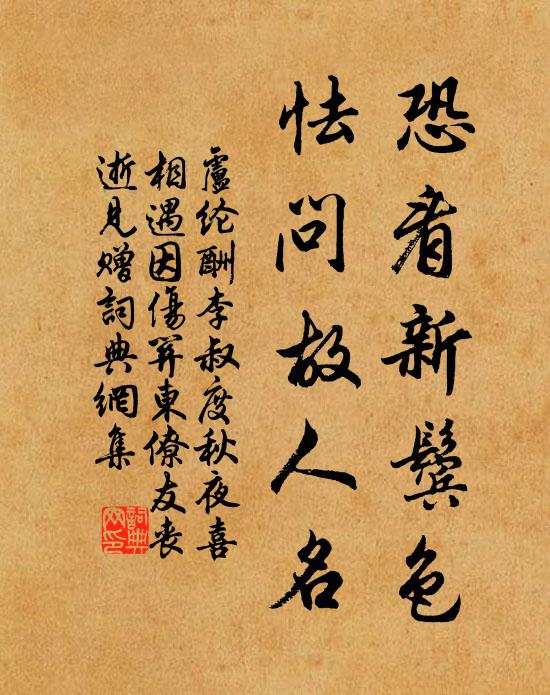 恐看新鬓色
怯问故人名
盧纶酬李叔度秋夜喜
相遇因傷関東僚友丧
逝见赠詞典網集